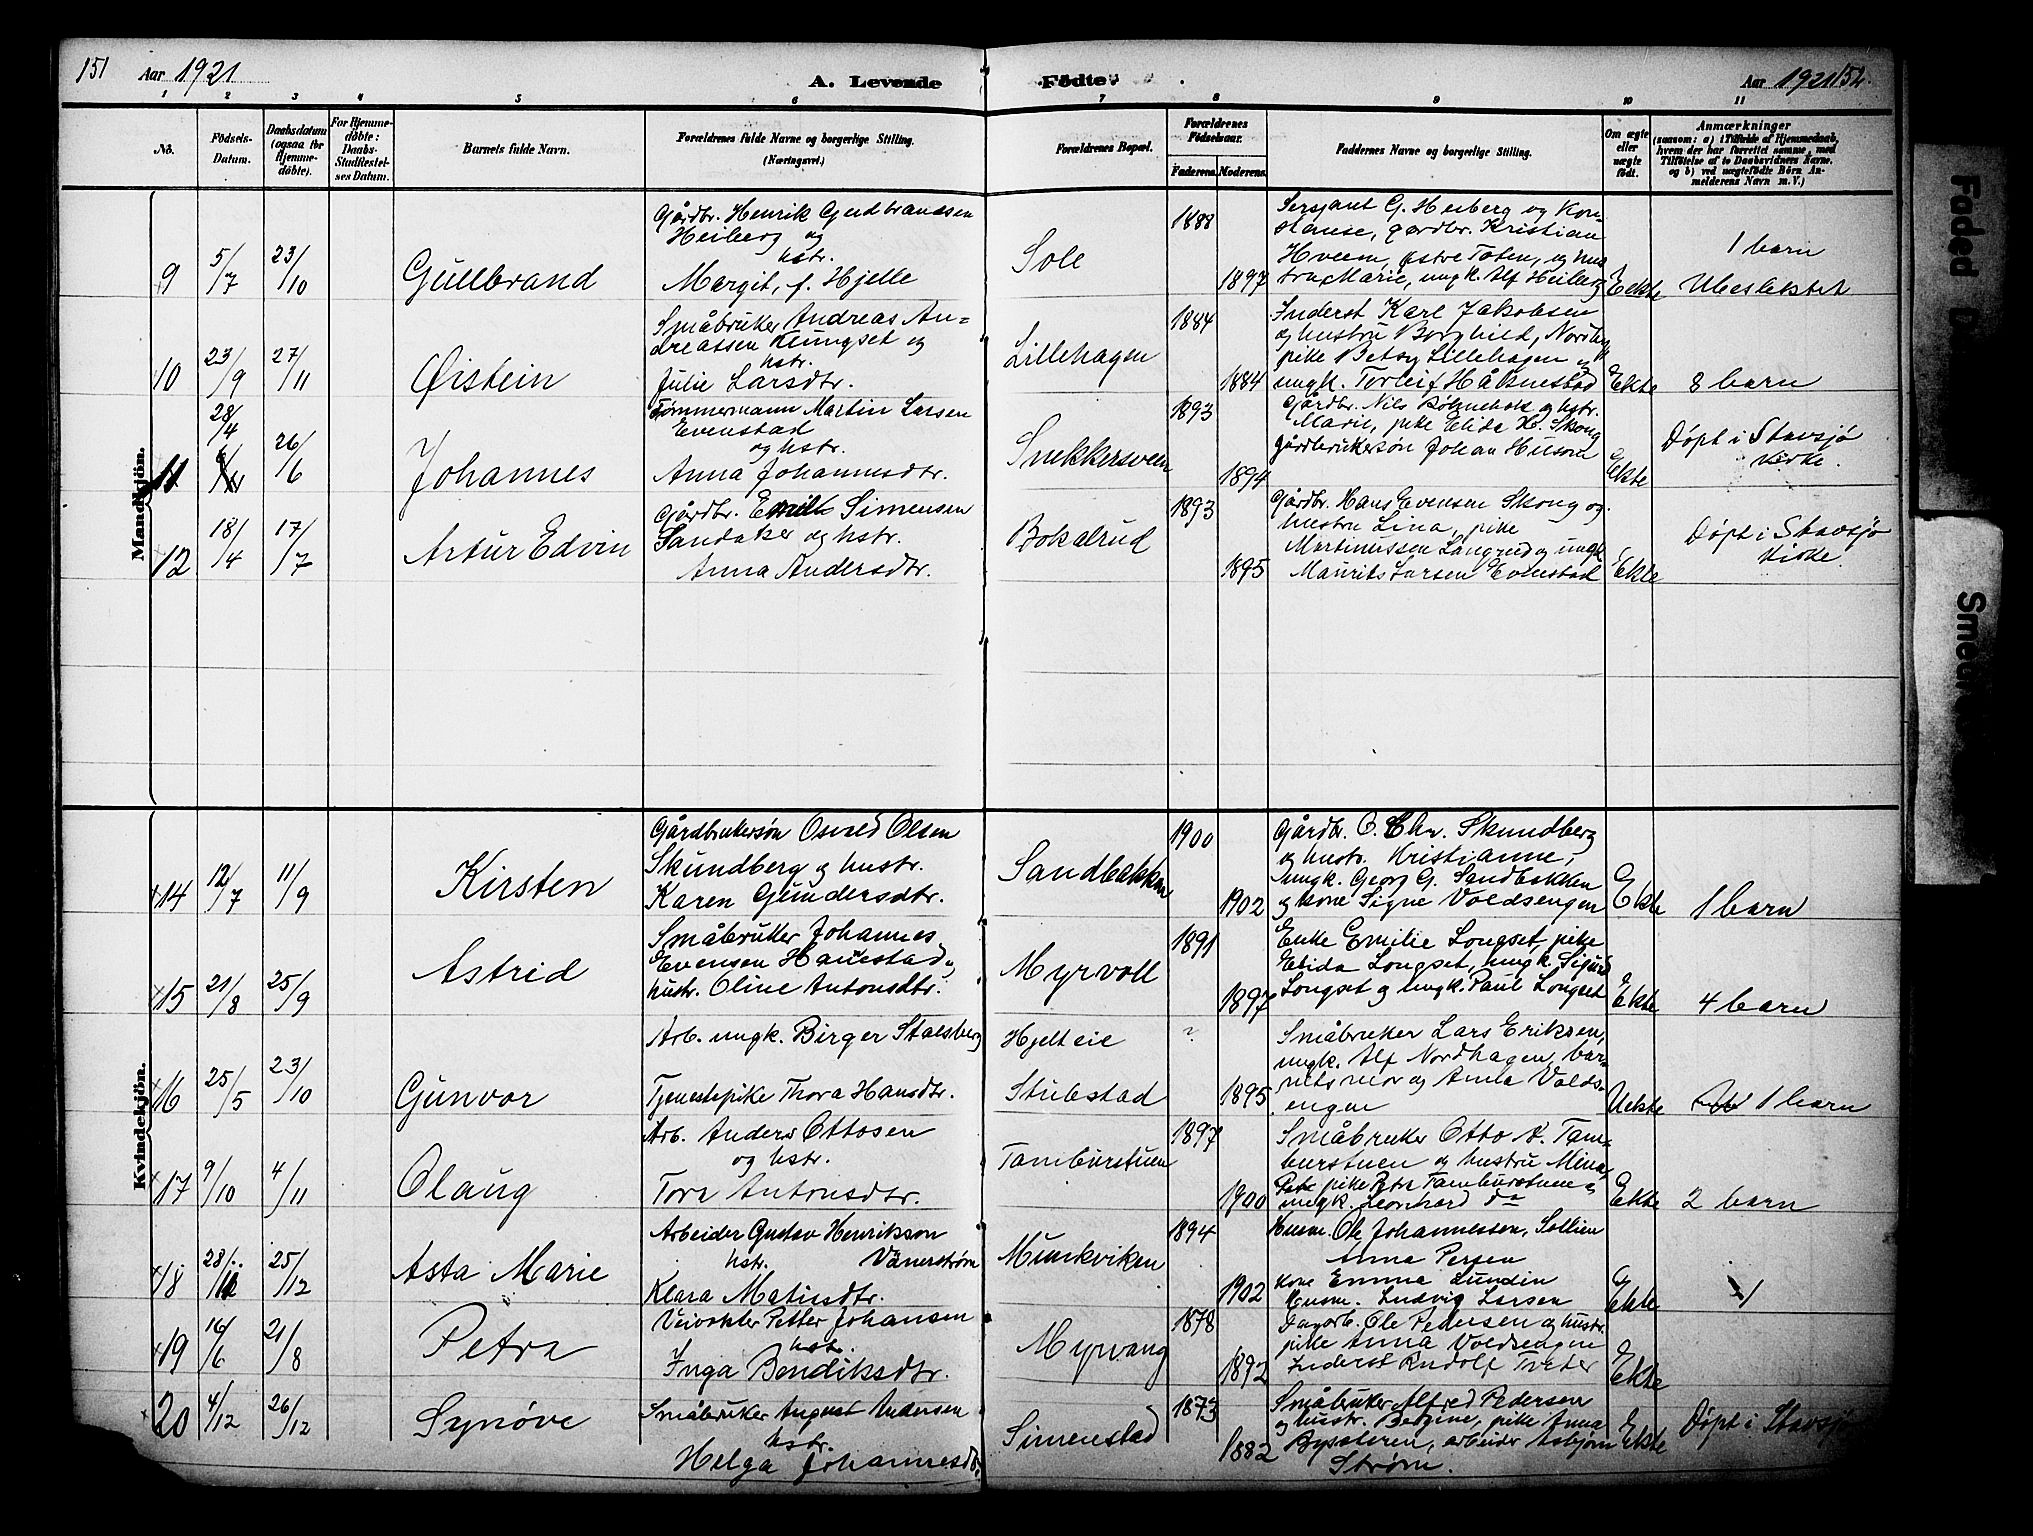 151 Aar 1921 A. Levende Fødte. Aar 1921 152.
1 2 3 4 5 6 7 8 9 10 11
No. Fødsels-Datum. Daabsdatum (ogsaa for Hjemmedøbte). For Hjemmedøbte: Daabs-Stadfæstelses Datum. Barnets fulde Navn. Forældrenes fulde Navne og borgerlige Stilling. (Næringsvei.) Forældrenes Bopæl. Forældrenes Fødselsaar. Faderens. Moderens. Faddernes Navne og borgerlige Stilling. Om ægte eller uægte født. Anmærkninger (saasom: a) i Tilfælde af Hjemmedaab, hvem der har forrettet samme, med Tilføielse af to Daabsvidners Navne. og b) ved uægtefødte Børn Anmelderens Navn m. V.)
Mandkjøn.
9 5/7 23/10 Gullbrand
Gårdbr. Henrik Gudbrandsen
Heiberg og
hstr.
Margit, f. Hjelle
Sole 1888 1897
Sersjant G. Heiberg og Kon-
stanse, gardbr. Kristian
Hveem, østre Toten, og hus-
tru Marie, ungk. Alf Heiberg
Eekte
1 barn
Ubeslektet
10 23/9 27/11 Øistein
Småbruker Andreas An=
dreassen Klungset og
hstr.
Julie Larsdtr.
Lillehagen 1884 1884
Inderst Karl Jakobsen
og hustru Borghild, Nordby
pike Betsy Lillehagen og
ungk. Torleif Håknestad
Ekte 8 barn
11 28/4 26/6 Johannes
Tømmermann Martin Larsen
Evenstad
og hstr.
Anna Johannesdtr.
Snekkersveen 1893 1894
Gårdbr. Nils Bøhnehok og hstr.
Marie, pike Elida H. Skong
gårdbrukersøn Johan Huson
Ekte
Døpt i Stavsjø
kirke.
12 18/4 17/7 Artur Edvin
Gårdbr. Emil Simensen
Sandaker og hstr.
Anna Andersdtr.
Bokalrud 1893 1895
Gårdbr. Hans Evensen Skong og
hustru Lina, pike
Martinussen Langrud og ungk.
Maurits Larsen Evenstad
Ekte
Døpt i Stavsjø
kirke.
Kvindekjøn.
14 12/7 11/9 Kirsten
Gårdbrukersøn Osvald Olsen
Skundberg og hustr.
Karen Gundersdtr.
Sandbakken 1900 1902
Gårdbr. O. Chr. Skundberg
og hustr. Kristianne,
ungk. Georg G. Sandbakken
og kone Signe Voldsengen
Ekte 1 barn
15 21/8 25/9 Astrid
Småbruker Johannes
Evensen Hanestad og
hustr. Oline Antonsdtr.
Myrvoll 1891 1897
Enke Emilie Longset, pike
Elida Longset, ungk. Sigurd
Longset og ungk. Paul Longset
Ekte 4 barn
16 25/5 23/10 Gunvor
Arb. ungk. Birger Stalsberg
Tjenestepike Thora Hansdtr.
Hjelteie
Stubstad
? 1895
Småbruker Lars Eriksen,
ungk. Alf Nordhagen, bar-
nets mor og Anna Volds-
engen
Uekte 1 barn
17 9/10 4/11 Olaug
Arb. Anders Ottosen
og hstr.
Tora Antonsdtr.
Tamburstuen 1897 1900
Småbruker Otto A. Tam-
burstuen og hustru Mina,
pike Petra Tamburstuen og
ungk. Leonhard do
Ekte 2 barn
18 28/11 25/12 Asta Marie
Arbeider Gustav Henrikson
hstr. Vänerström
Klara Matisdtr.
Munkviken 1894 1902
Husm. Ole Johannessen, Sollien
Anna Persen
Kone Emma Lundin
Husm. Ludvig Larsen
Ekte 1
19 16/6 21/8 Petra
Veivokter Petter Johansen
hstr.
Inga Bendiksdtr.
Myrvang 1878 1892
Dagarb. Ole Pedersen og hustr.
pike Anna Voldsengen
Inderst Rudolf Tveter
Ekte
20 4/12 26/12 Synøve
Småbruker August Andersen
hstr.
Helga Johannesdtr.
Simenstad 1873 1882
Småbruker Alfred Pedersen
og hustr. Bergine, pike Anna
Bysæteren, arbeider Asbjørn
Strøm.
Ekte Døpt i Stavsjø
Faded